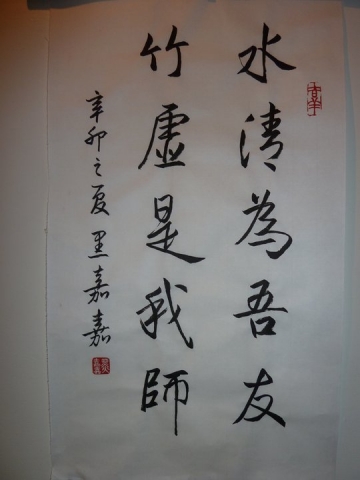 水清為吾友
竹虛是我師
辛卯之夏 黑嘉嘉